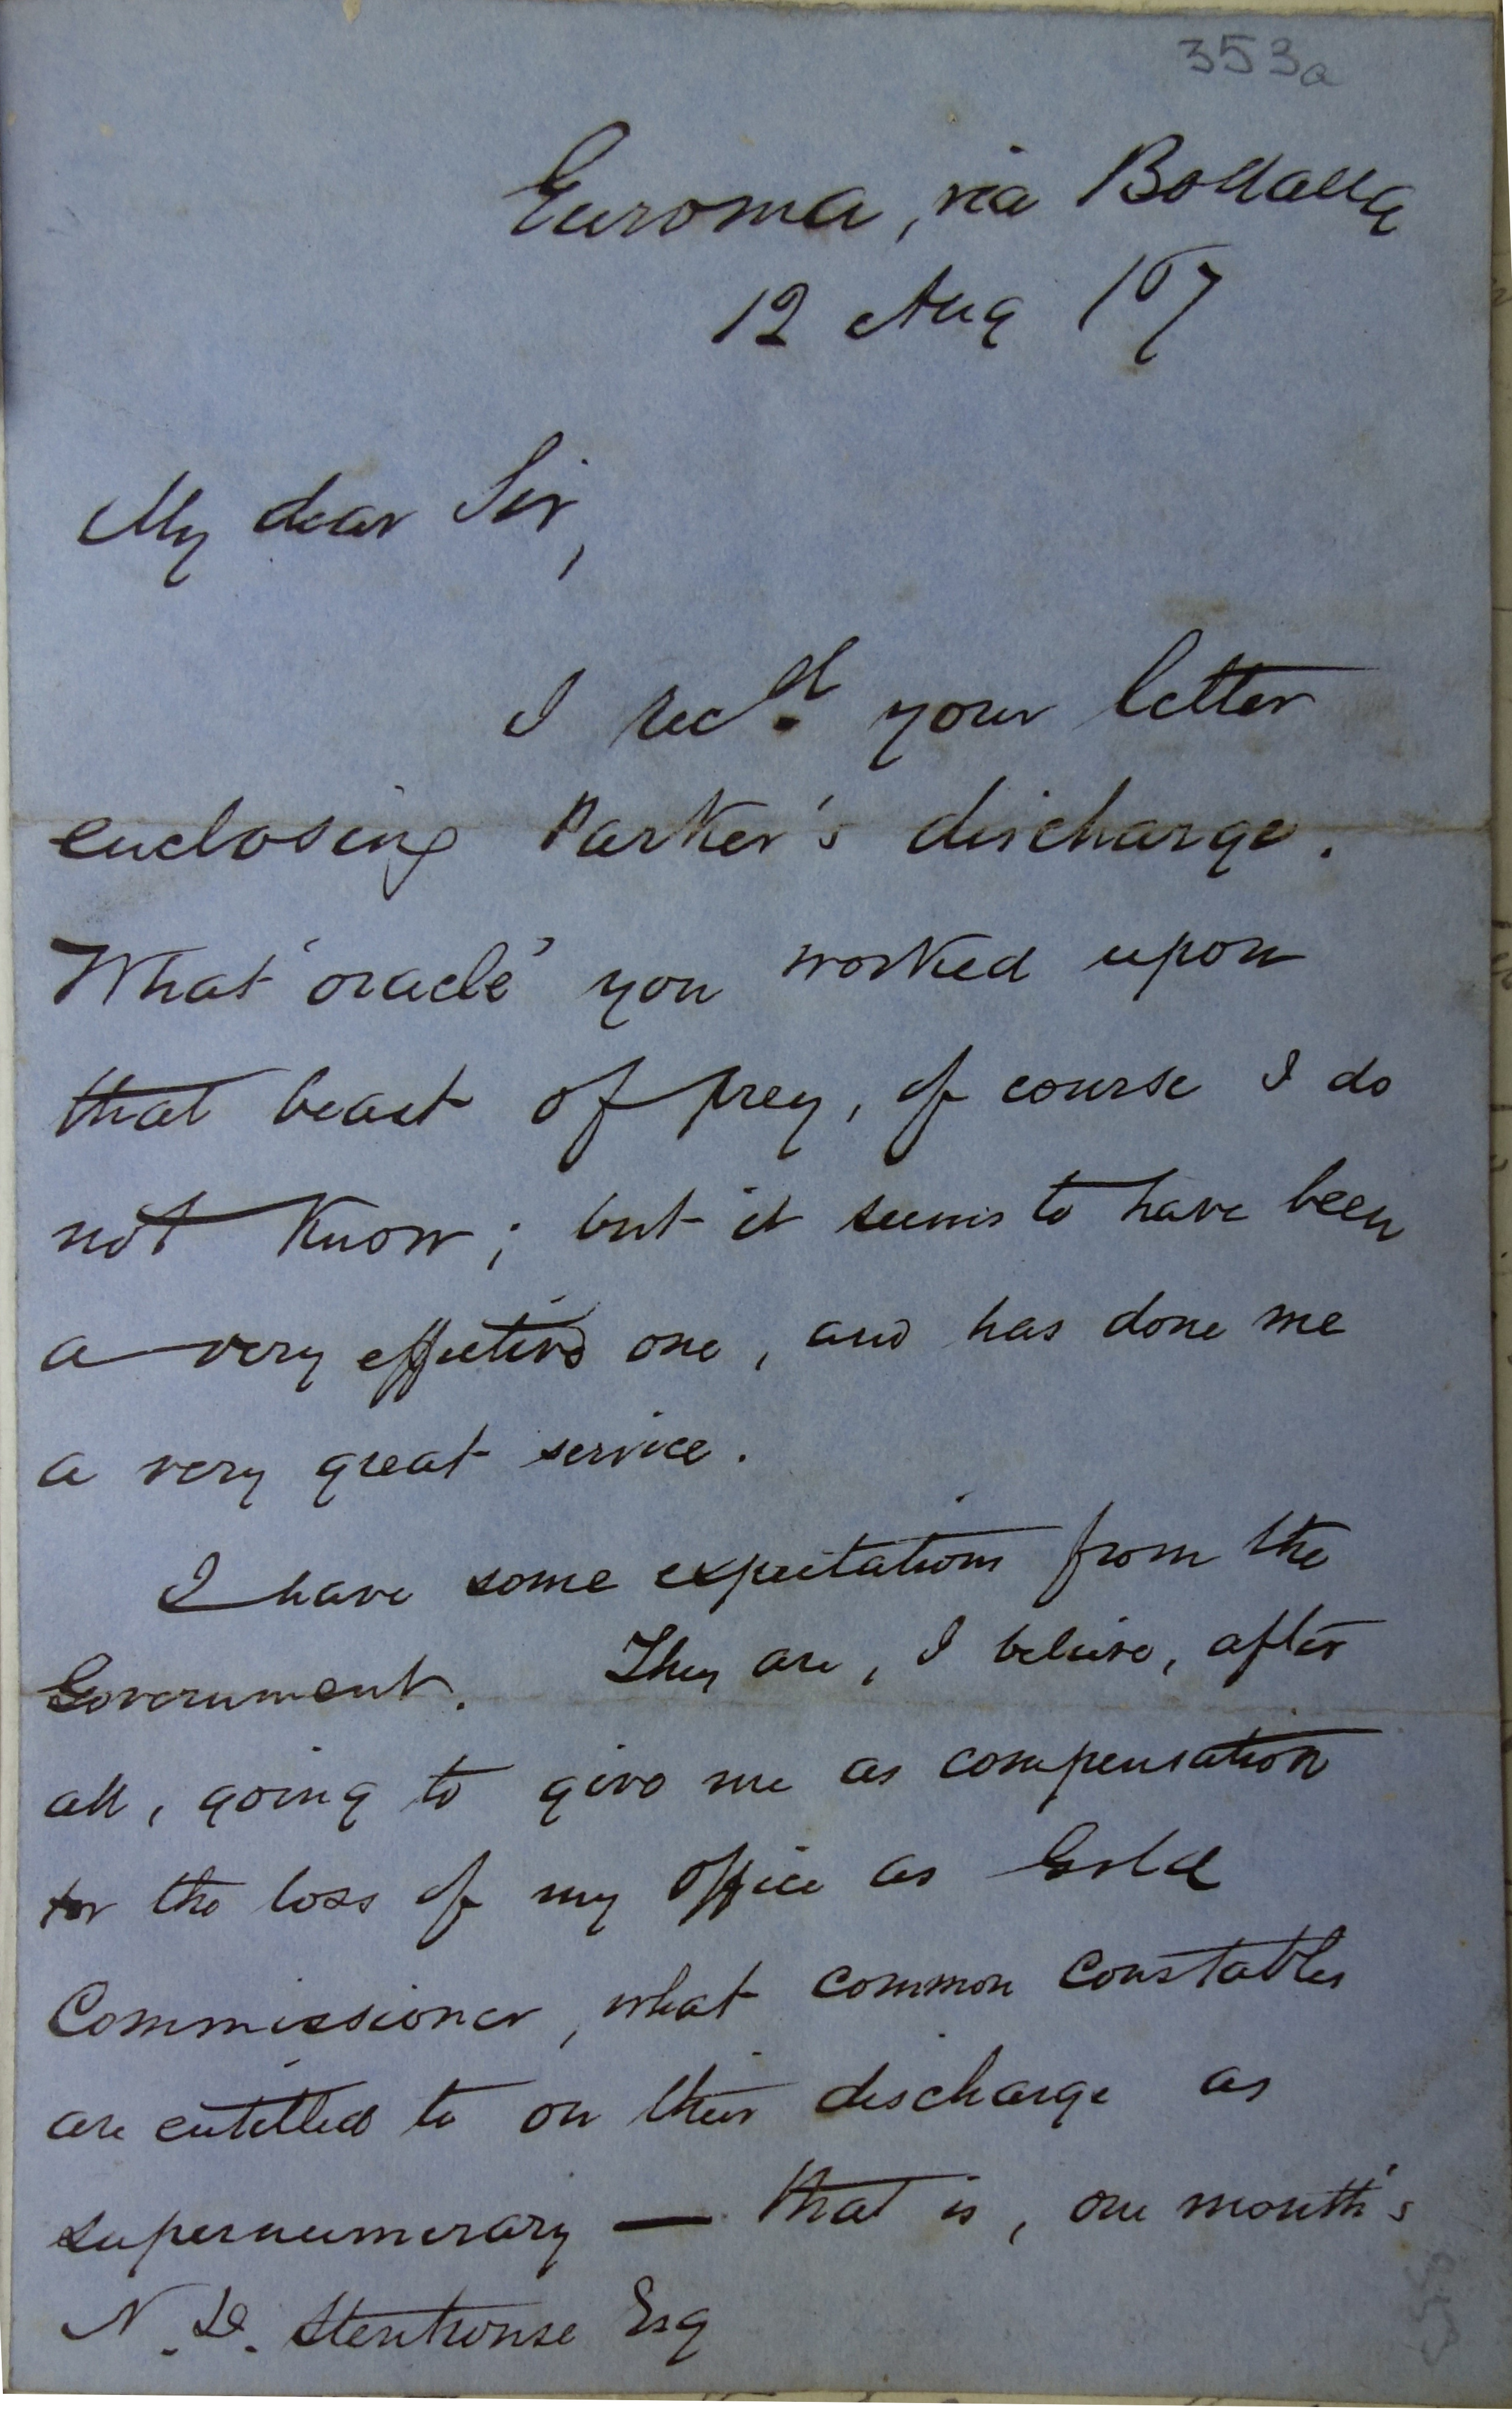 353a
Euroma, via Bodalla
12 Aug / 67
My dear Sir,
I recd. your letter
enclosing Parker's discharge.
What 'oracle' you worked upon
that beast of prey, of course I do
not know; but it seems to have been
a very effective one, and has done me
a very great service.
I have some expectations from the
Government. They are, I believe, after
all, going to give me as compensation
for the loss of my office as Gold
Commissioner, what common constables
are entitled to on their discharge as
supernumerary — that is, one month's
N. D. Stenhouse Esq